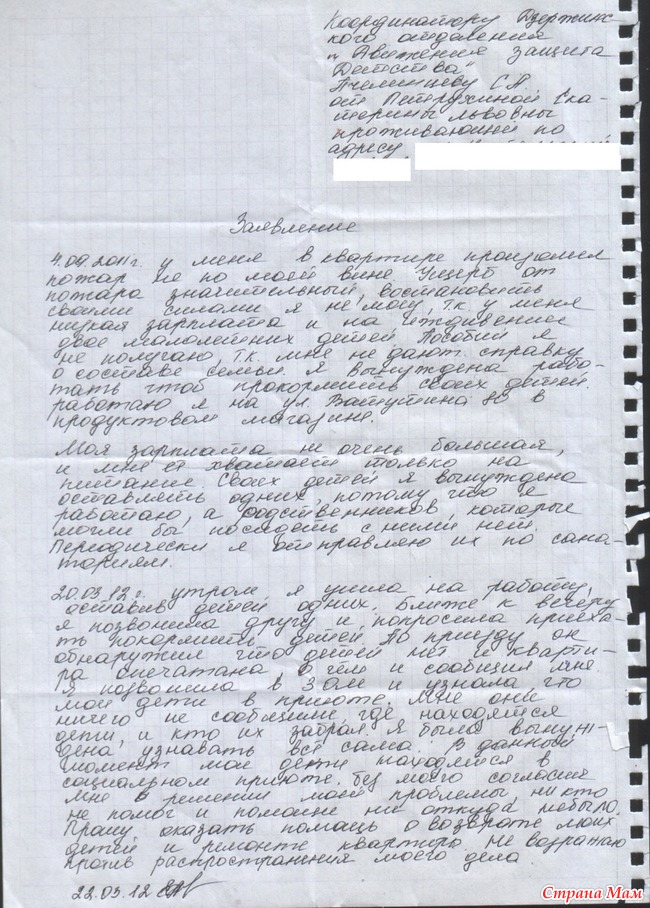 Координатору Дзержинс-
кого отделения
"Движения защита
Детства"
Пчелинцеву СА
от Петрухиной Ека-
терины Львовны
проживающей по
адресу
Заявление
4.09.2011г. у меня в квартире произошел
пожар не по моей вине. Ущерб от
пожара значительный, востановить
своими силами я не могу, т.к. у меня
низкая зарплата и на иждивение
двое малолетних детей. Пособий я
не получаю, т.к. мне не дают справку
о составе семьи. Я вынуждена рабо-
тать чтоб прокормить своих детей.
работаю я на ул. Ватутина 80 в
продуктовом магазине.
Моя зарплата не очень большая,
и мне её хватает только на
питание. Своих детей я вынуждена
оставлять одних, потому что я
работаю, а родственников, которые
могли бы посидеть с ними нет.
Периодически я отправляю их по сана-
ториям.
20.03.12г. утром я ушла на работу,
оставив детей одних. Ближе к вечеру
я позвонила другу и попросила приеха-
ть покормить детей. По приезду он
обнаружил что детей нет и кварти-
ра опечатана, о чем и сообщил мне.
Я позвонила в 30м и узнала что
мои дети в приюте. Мне они
ничего не сообщили, где находятся
дети и кто их забрал. Я была вынуж-
дена узнавать всё сама. В данный
момент мои дети находятся в
социальном приюте. Без моего согласия
Мне в решении моей проблемы ни кто
не помог и помощи ни откуда небыло.
Прошу оказать помощь о возврате моих
детей и ремонте квартиры. Не возражаю
против распространения моего дела
22.03.12
Страна Мам